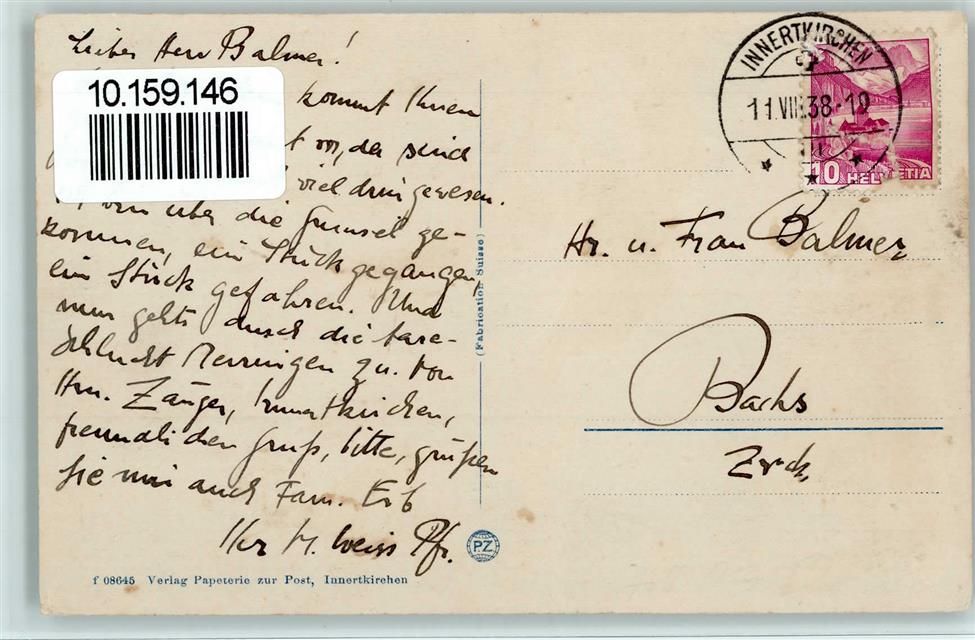 Lieber Herr Balmer!
10.159.146
kommt Ihnen
vor, da sind
viel drin gewesen.
wir über die Grimsel ge-
kommen, ein Stück gegangen,
ein Stück gefahren. Und
nun gehts durch die Aare-
schlucht Meiringen zu. Von
Hrn. Zänger, Innertkirchen,
freundlichen Gruß, bitte, grüßen
Sie mir auch Fam. Erb
Ihr H. Weiss Pfr.
f 08645 Verlag Papeterie zur Post, Innertkirchen
(Fabrication Suisse)
PZ
INNERTKIRCHEN
11.VIII.38-19
10 HELVETIA
Hr. u. Frau Balmer
Bachs
Zrch.